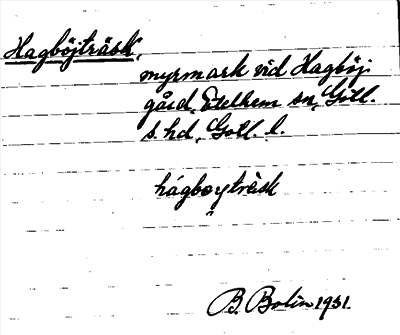 Hagböjträsk,
myrmark vid Hagböj
gård, Etelhem sn, Gotl.
s. hd, Gotl. l.
hágboyträsk
B. Bolin 1931.